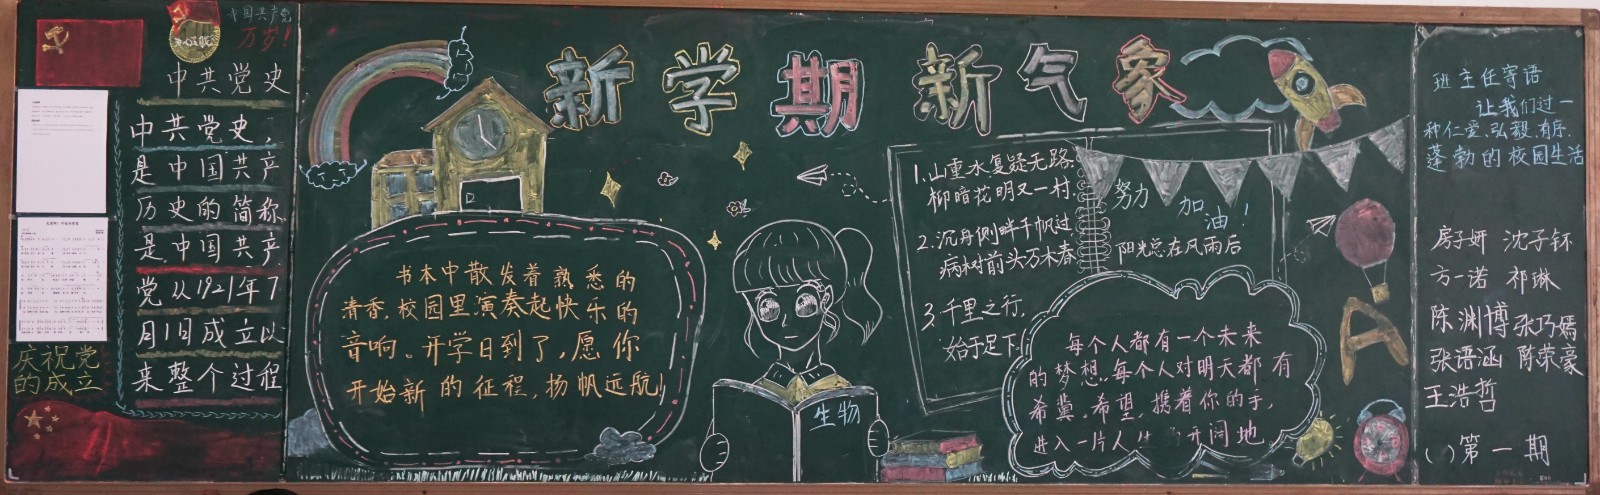 中国共产党
万岁！
中共党史
中共党史，
是中国共产
历史的简称
是中国共产
党从1921年7
月1日成立以
来整个过程
庆祝党
的成立
新学期新气象
书本中散发着熟悉的
清香，校园里演奏起快乐的
音响。开学日到了，愿你
开始新的征程，扬帆远航！
生物
1.山重水复疑无路，
柳暗花明又一村。
2.沉舟侧畔千帆过，
病树前头万木春
3.千里之行，
始于足下。
努力加油！
阳光总在风雨后
每个人都有一个未来
的梦想，每个人对明天都有
希冀。希望，携着你的手，
进入一片人生的开阔地
班主任寄语
让我们过一
种仁爱、弘毅、有序、
蓬勃的校园生活
房子妍 沈子钚
方一诺 祁琳
陈渊博 张巧嫣
张语涵 陈荣豪
王浩哲
( )第一期